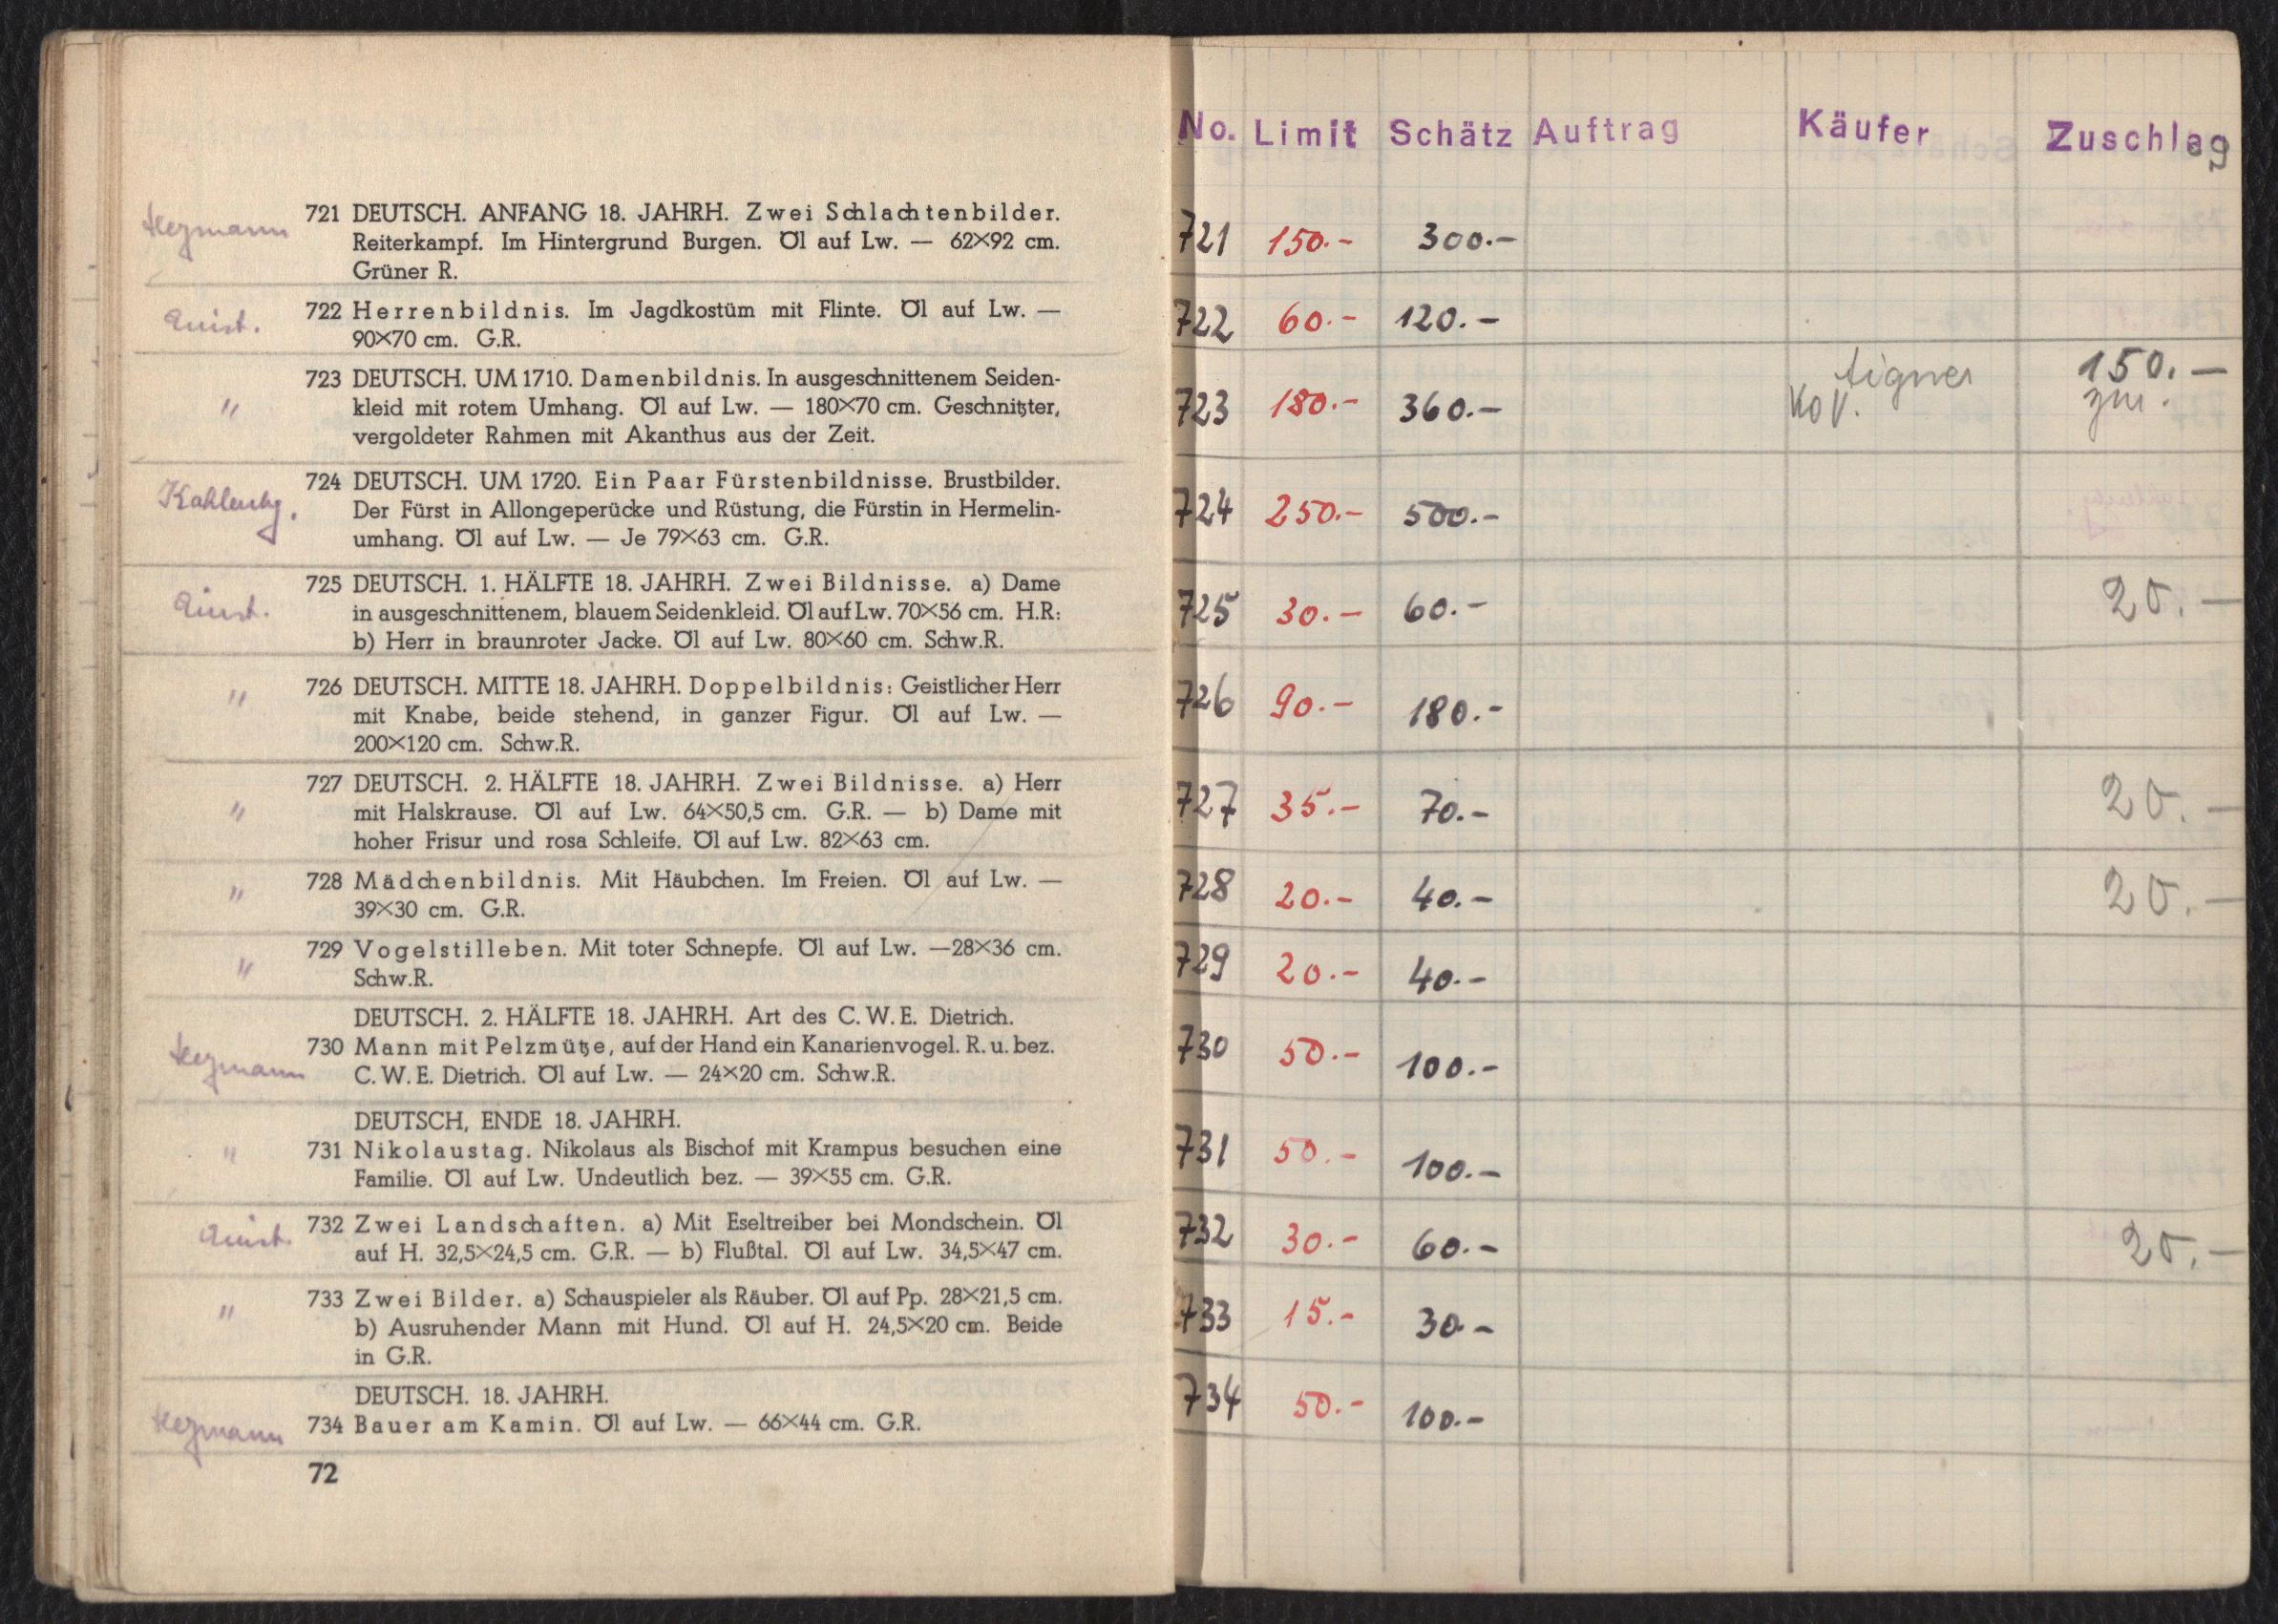 Hegmann
721 DEUTSCH. ANFANG 18. JAHRH. Zwei Schlachtenbilder.
Reiterkampf. Im Hintergrund Burgen. Öl auf Lw. — 62×92 cm.
Grüner R.
722 Herrenbildnis. Im Jagdkostüm mit Flinte. Öl auf Lw. —
90×70 cm. G.R.
" 723 DEUTSCH. UM 1710. Damenbildnis. In ausgeschnittenem Seiden-
kleid mit rotem Umhang. Öl auf Lw. — 180×70 cm. Geschnitzter,
vergoldeter Rahmen mit Akanthus aus der Zeit.
724 DEUTSCH. UM 1720. Ein Paar Fürstenbildnisse. Brustbilder.
Kahlenbg. Der Fürst in Allongeperücke und Rüstung, die Fürstin in Hermelin-
umhang. Öl auf Lw. — Je 79×63 cm. G.R.
725 DEUTSCH. 1. HÄLFTE 18. JAHRH. Zwei Bildnisse. a) Dame
in ausgeschnittenem, blauem Seidenkleid. Öl auf Lw. 70×56 cm. H.R:
b) Herr in braunroter Jacke. Öl auf Lw. 80×60 cm. Schw.R.
" 726 DEUTSCH. MITTE 18. JAHRH. Doppelbildnis: Geistlicher Herr
mit Knabe, beide stehend, in ganzer Figur. Öl auf Lw. —
200×120 cm. Schw.R.
727 DEUTSCH. 2. HÄLFTE 18. JAHRH. Zwei Bildnisse. a) Herr
" mit Halskrause. Öl auf Lw. 64×50,5 cm. G.R. — b) Dame mit
hoher Frisur und rosa Schleife. Öl auf Lw. 82×63 cm.
" 728 Mädchenbildnis. Mit Häubchen. Im Freien. Öl auf Lw. —
39×30 cm. G.R.
" 729 Vogelstilleben. Mit toter Schnepfe. Öl auf Lw. —28×36 cm.
Schw.R.
DEUTSCH. 2. HÄLFTE 18. JAHRH. Art des C. W. E. Dietrich.
Hegmann 730 Mann mit Pelzmütze, auf der Hand ein Kanarienvogel. R. u. bez.
C. W. E. Dietrich. Öl auf Lw. — 24×20 cm. Schw.R.
DEUTSCH, ENDE 18. JAHRH.
" 731 Nikolaustag. Nikolaus als Bischof mit Krampus besuchen eine
Familie. Öl auf Lw. Undeutlich bez. — 39×55 cm. G.R.
732 Zwei Landschaften. a) Mit Eseltreiber bei Mondschein. Öl
auf H. 32,5×24,5 cm. G.R. — b) Flußtal. Öl auf Lw. 34,5×47 cm.
" 733 Zwei Bilder. a) Schauspieler als Räuber. Öl auf Pp. 28×21,5 cm.
b) Ausruhender Mann mit Hund. Öl auf H. 24,5×20 cm. Beide
in G.R.
DEUTSCH. 18. JAHRH.
Hegmann 734 Bauer am Kamin. Öl auf Lw. — 66×44 cm. G.R.
72
No. Limit Schätz Auftrag Käufer Zuschlag
721 150.- 300.-
722 60.- 120.-
723 180.- 360.- Aigner Kov. 150.—
724 250.- 500.-
725 30.- 60.- 20.—
726 90.- 180.-
727 35.- 70.- 20.—
728 20.- 40.- 20.—
729 20.- 40.-
730 50.- 100.-
731 50.- 100.-
732 30.- 60.- 20.—
733 15.- 30.-
734 50.- 100.-